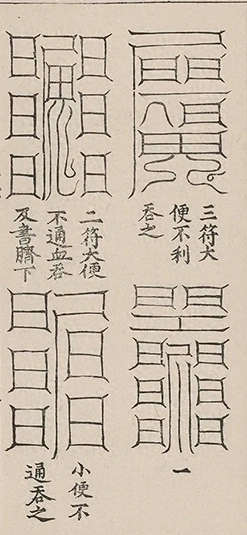 三符大
便不利
吞之
一
二符大便
不通血吞
及書臍下
小便不
通吞之